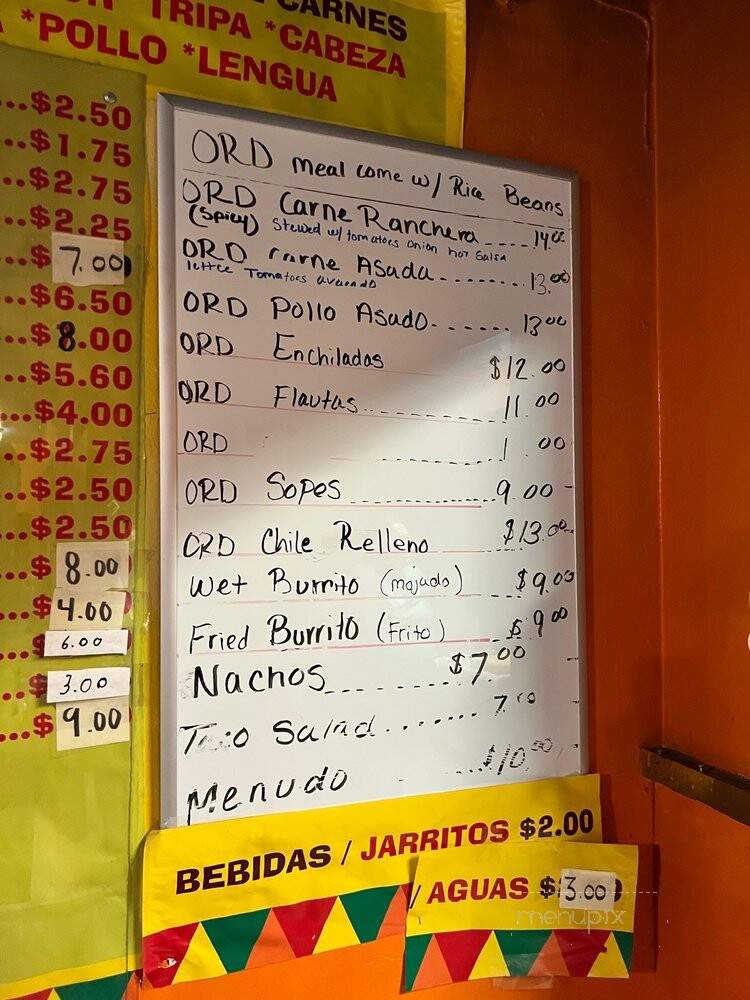 CARNES
TRIPA *CABEZA
*POLLO *LENGUA
...$2.50
...$1.75
...$2.75
...$2.25
...$ 7.00
...$6.50
...$8.00
...$5.60
...$4.00
...$2.75
...$2.50
...$2.50
...$ 8.00
...$ 4.00
6.00
..$ 3.00
...$ 9.00
ORD meal come w/ Rice Beans
ORD Carne Ranchera ---- 14.00
(Spicy) Stewed w/ tomatoes onion hot salsa
ORD carne Asada ------- 13.00
lettce Tomatoes avocado
ORD Pollo Asado ------ 13.00
ORD Enchiladas $12.00
ORD Flautas ------- 11.00
ORD ------- 1 .00
ORD Sopes ------- 9.00
ORD Chile Relleno --- $13.00
Wet Burrito (mojado) --- $9.00
Fried Burrito (Frito) --- $9.00
Nachos ------- $7.00
Taco Salad ....... 7.00
Menudo ...$10.00
BEBIDAS / JARRITOS $2.00
/ AGUAS $3.00
menupix